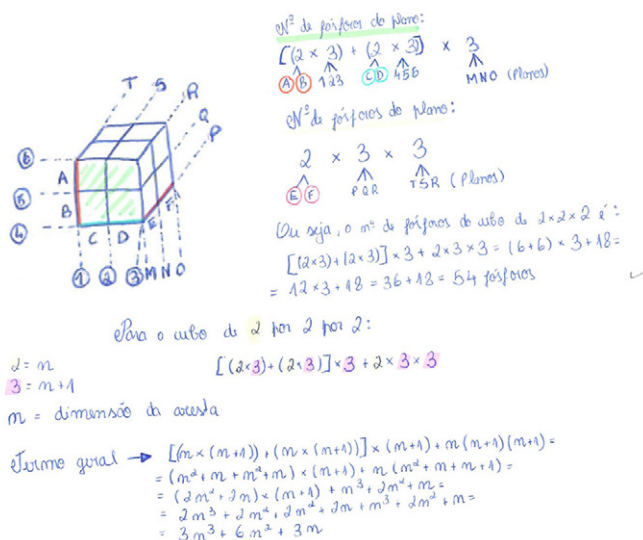 Nº de fósforos do plano:
[(2 × 3) + (2 × 3)] × 3
A B 1 2 3 C D 4 5 6 M N O (Planos)
Nº de fósforos do plano:
2 × 3 × 3
E F P Q R T S R (Planos)
Ou seja, o nº de fósforos do cubo de 2×2×2 é:
[(2×3)+(2×3)]×3+2×3×3=(6+6)×3+18=
=12×3+18=36+18=54 fósforos
T S R
Q
P
6
A
5
B
4
C D E F
1 2 3 M N O
Para o cubo de 2 por 2 por 2:
2=n
[(2×3)+(2×3)]×3+2×3×3
3=n+1
n = dimensão da aresta
Termo geral → [(n×(n+1))+(n×(n+1))]×(n+1)+n(n+1)(n+1)=
=(n²+n+n²+n)×(n+1)+n(n²+n+n+1)=
=(2n²+2n)×(n+1)+n³+2n²+n=
=2n³+2n²+2n²+2n+n³+2n²+n=
=3n³+6n²+3n